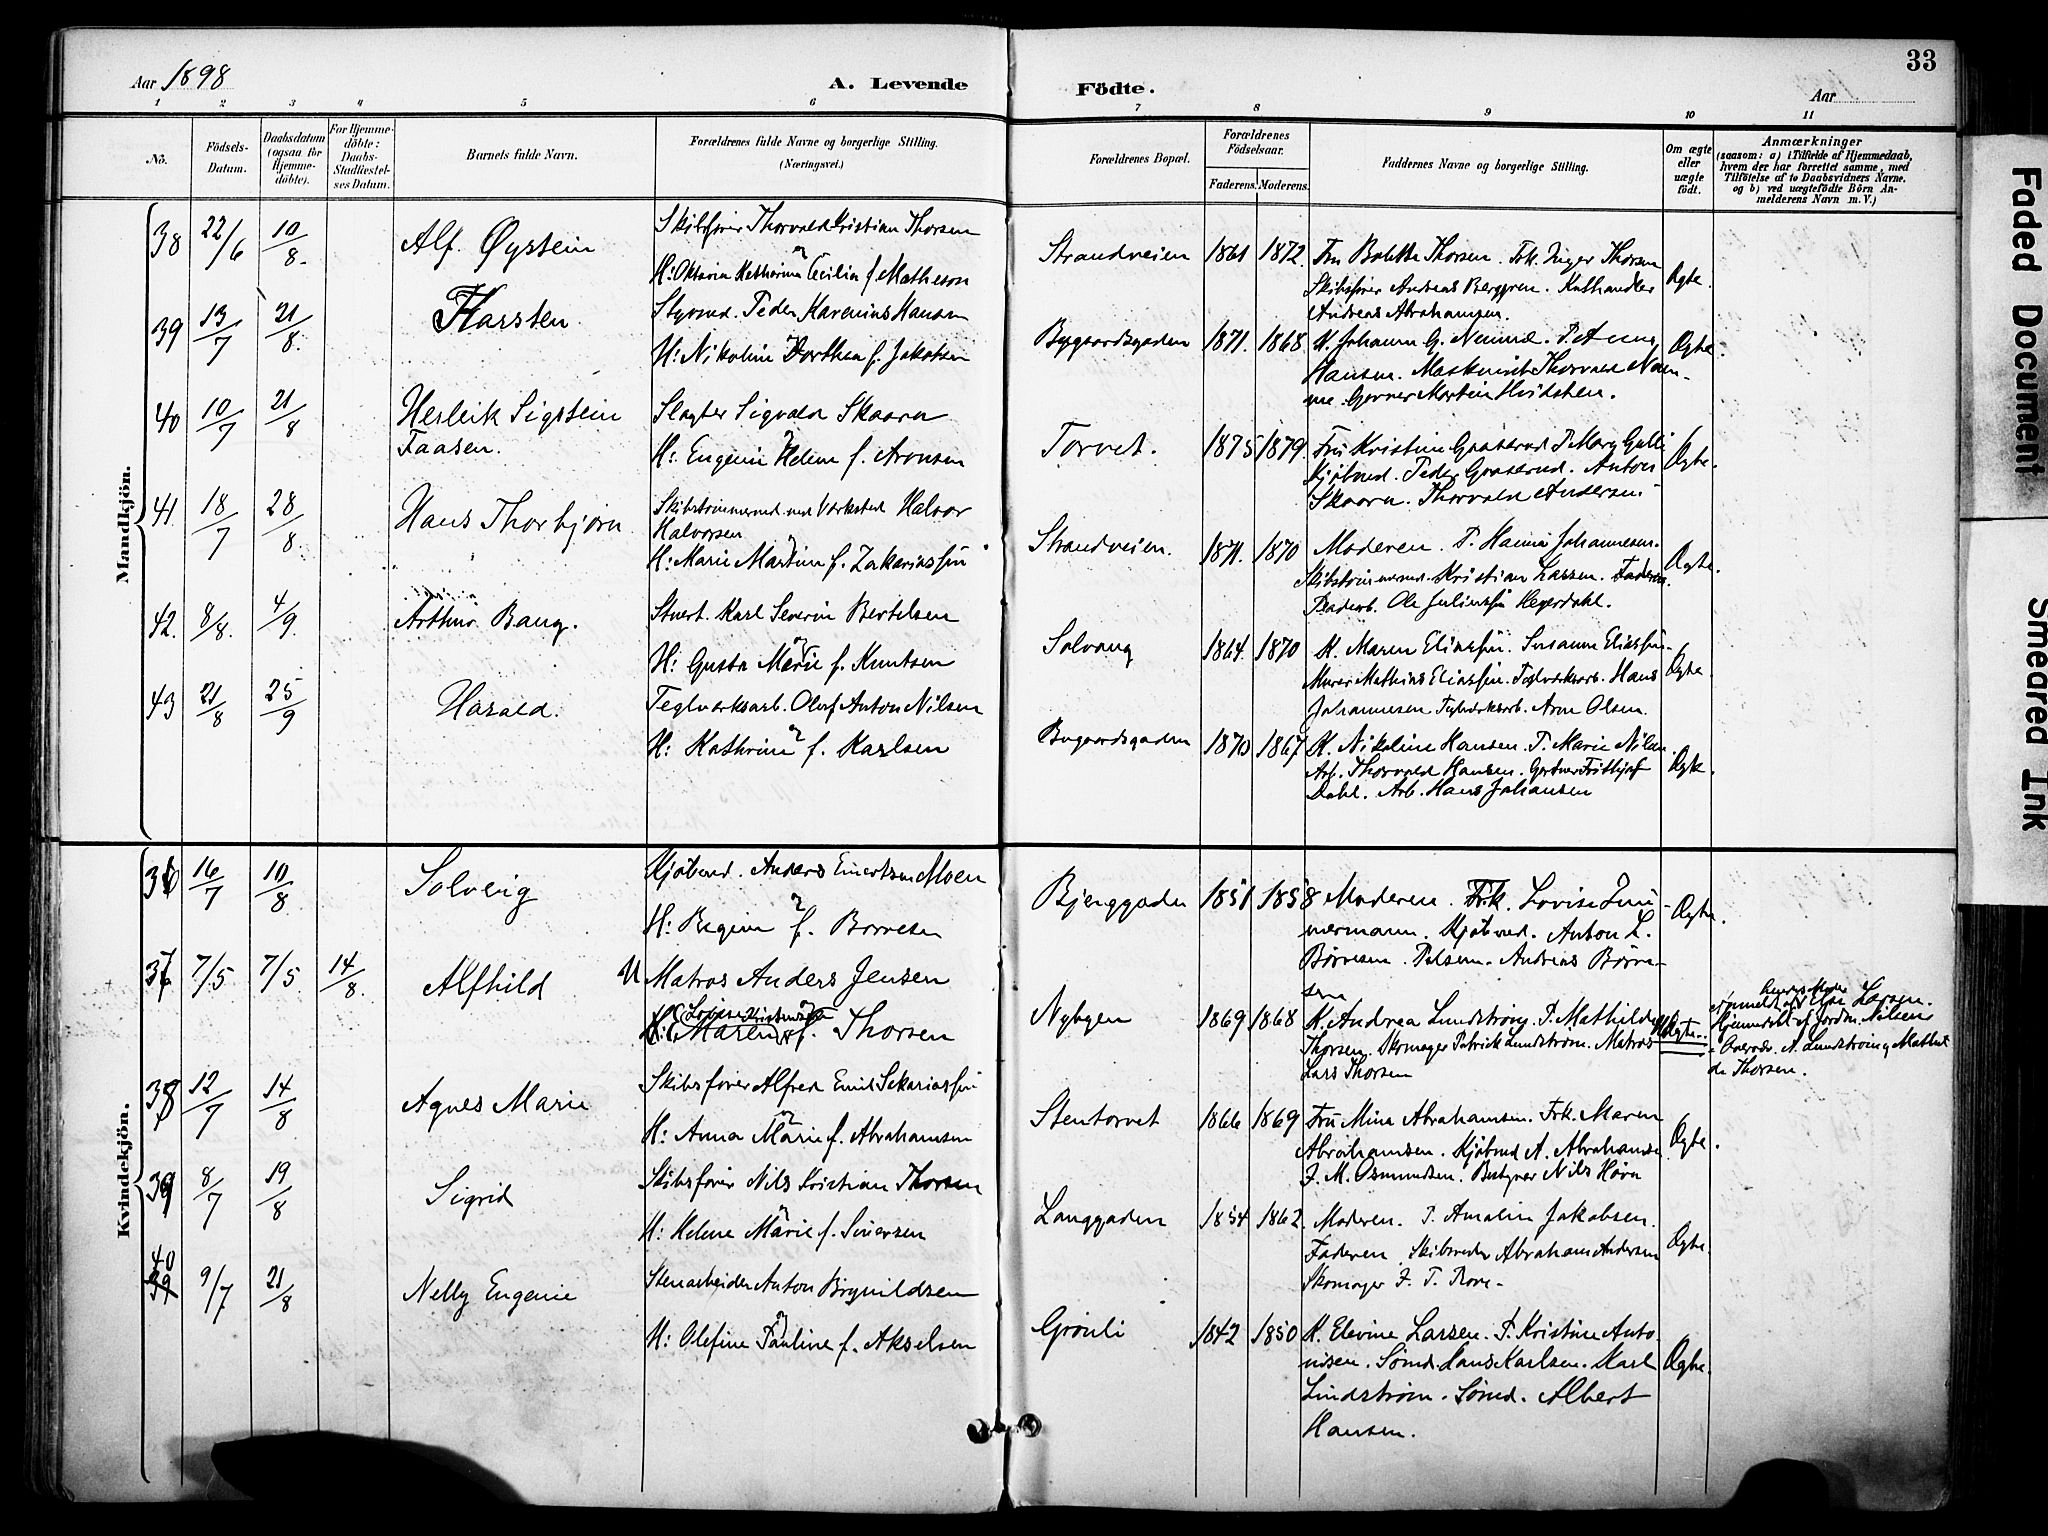 33
Aar 1898
A. Levende
Födte.
Aar
1 2 3 4 5 6 7 8 9 10 11
No.
Födsels-
Datum.
Daabsdatum
(ogsaa for
Hjemme-
döbte).
For Hjemme-
döbte:
Daabs-
Stadfæstel-
ses Datum.
Barnets fulde Navn.
Forældrenes fulde Navne og borgerlige Stilling.
(Næringsvei.)
Forældrenes Bopæl.
Forældrenes
Födselsaar.
Faderens. Moderens.
Faddernes Navne og borgerlige Stilling.
Om ægte
eller
uægte
födt.
Anmærkninger
(saasom: a) i Tilfælde af Hjemmedaab,
hvem der har forrettet samme, med
Tilföielse af to Daabsvidners Navne.
og b) ved uægtefödte Börn An-
melderens Navn m. V.)
Mandkjön.
38 22/6 10/8. Alf. Øystein
Skibsfører Thorvald Kristian Thorsen
H: Oktavia Katharina Cecilia f. Matheson
Strandveien 1861 1872.
Fru Bolette Thorsen. Frk. Inger Thorsen
Skibsfører Andreas Berggren. Kulhandler
Andreas Abrahamsen.
Ægte.
39 13/7 21/8. Karsten
Styrmd. Peder Karenius Hansen
H: Nikoline Dorthea f. Jakobsen
Bygaardsgaden 1871. 1868.
Hansen. Maskinist Thorvald
Martin
Ægte.
40 10/7 21/8 Herleik Sigstein
Faasen.
Slagter Sigvald Skaarn
H: Eugenie Helene f. Aronsen
Torvet. 1875 1879.
Fru Kristine Graasrud P. Mary Gulli
Kjøbmd. Peder Graasrud. Anton
Skaarn. Thorvald Andersen.
Ægte.
41 18/7 28/8. Hans Thorbjørn
Skibstømmermd med Værksted Halvor
Halvorsen
H: Marie Martine f. Zakariassen
Strandveien. 1871. 1870
Moderen. P. Hanna Johannesen.
Skibstømmermd. Kristian Larsen. Faderen.
Ole Juliussen Hegerdahl.
Ægte.
42. 8/8. 4/9. Arthur Bang.
Stuert. Karl Severin Bertelsen
H: Gusta Marie f. Knutsen
Solvang 1864. 1870
K. Maren Eliassen. Susanne Eliassen.
Murer Mathias Eliassen. Teglværksarb. Hans
Johannesen Teglværksarb. Arne Olsen.
Ægte.
43 21/8 25/9 Harald.
Teglværksarb. Oluf Anton Nilsen
H: Kathrine f. Karlsen
Bygaardsgaden 1870 1867
K. Nikoline Hansen. P. Marie Nilsen.
Arb. Thorvald Hansen. Gartner Fritthjof
Dahl. Arb. Hans Johansen
Ægte.
Kvindekjön.
36 16/7 10/8 Solveig
Kjøbmd. Anders Einertsen Moen
H: Regine f. Børresen
Bjerggaden 1851 1858
Moderen. Frk. Lovise Zim-
mermann. Kjøbmd. Anton L.
Børresen. Pølsem. Andreas Børre-
sen
Ægte.
37 7/5 7/5 14/8. Alfhild
U Matros Anders Jensen
H: Maren f. Thorsen
Nybyen 1869 1868
K. Andrea Lundstrøm. P. Mathilde
Thorsen. Skomager Patrick Lundstrøm. Matros
Lars Thorsen
UÆgte.
Larsen.
Hjemmedøbt af Jordm. Nilsen
Overvær. A. Lundstrøm og Mathil
de Thorsen.
38 12/7 14/8 Agnes Marie
Skibsfører Alfred Emil Sakariassen
H: Anna Marie f. Abrahamsen
Stentorvet 1866 1869
Fru Mina Abrahamsen. Frk. Maren
Abrahamsen. Kjøbmd A. Abrahamsen
J. M. Osmundsen. Bestyrer Nils Hørn
Ægte.
39 8/7 19/8 Sigrid
Skibsfører Nils Kristian Thorsen
H: Helene Marie f. Siversen
Langgaden 1854. 1862.
Moderen. P. Amalie Jakobsen.
Faderen. Skibsreder Abraham Andersen
Skomager J. T. Rove.
Ægte.
40
39 9/7 21/8 Nelly Eugenie
Stenarbeider Anton Brynildsen
H: Olefine Pauline f. Akselsen
Grønli 1842 1850
K. Elevine Larsen. P. Kristine Anto-
nisen. Sømd. Hans Karlsen. Karl
Lindstrøm. Sømd. Albert
Hansen.
Ægte.
Faded Document
Smeared Ink